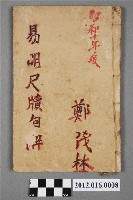 昭和十年度
鄭茂林
易明尺牘句解
2012.015.0008